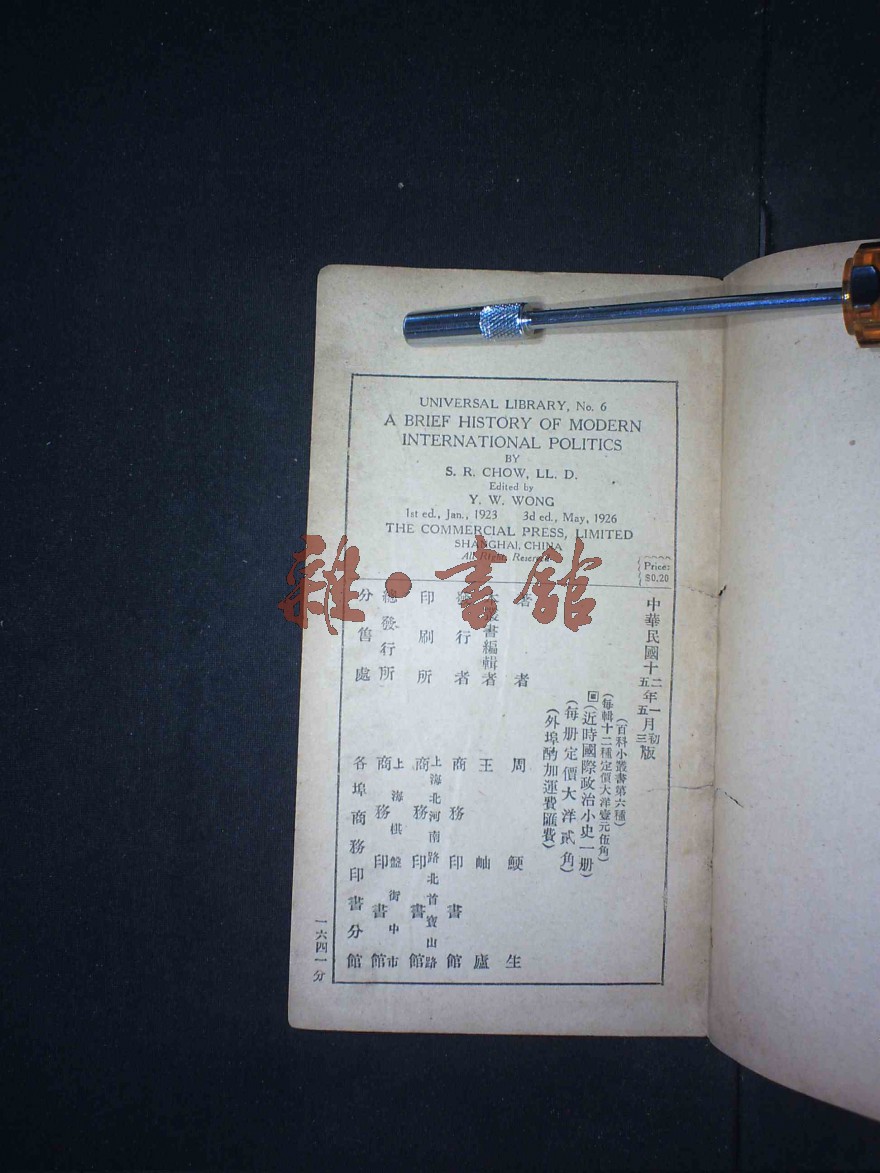 UNIVERSAL LIBRARY, No. 6
A BRIEF HISTORY OF MODERN
INTERNATIONAL POLITICS
BY
S. R. CHOW, LL. D.
Edited by
Y. W. WONG
1st ed., Jan., 1923 3d ed., May, 1926
THE COMMERCIAL PRESS, LIMITED
SHANGHAI, CHINA
All Rights Reserved
Price:
$0.20
雜·書館
中華民國十二年一月初版
五年五三
(百科小叢書第六種)
(每輯十二種定價大洋壹元伍角)
(近時國際政治小史一册)
(每册定價大洋貳角)
(外埠酌加運費匯費)
著者 周鯁生
叢書編輯者 王岫廬
發行者 商務印書館
印刷所 上海北河南路北首寶山路 商務印書館
總發行所 上海棋盤街中市 商務印書館
分售處 各埠商務印書分館
一六四一分